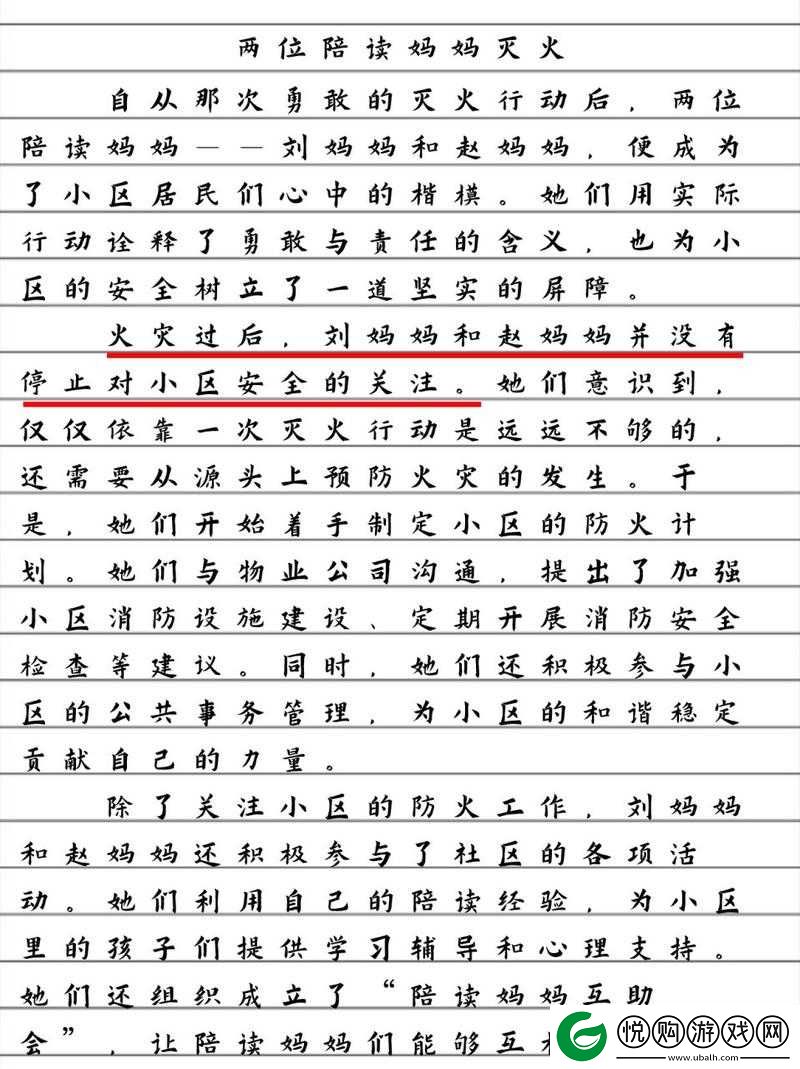 两位陪读妈妈灭火
自从那次勇敢的灭火行动后，两位
陪读妈妈——刘妈妈和赵妈妈，便成为
了小区居民们心中的楷模。她们用实际
行动诠释了勇敢与责任的含义，也为小
区的安全树立了一道坚实的屏障。
火灾过后，刘妈妈和赵妈妈并没有
停止对小区安全的关注。她们意识到，
仅仅依靠一次灭火行动是远远不够的，
还需要从源头上预防火灾的发生。于
是，她们开始着手制定小区的防火计
划。她们与物业公司沟通，提出了加强
小区消防设施建设、定期开展消防安全
检查等建议。同时，她们还积极参与小
区的公共事务管理，为小区的和谐稳定
贡献自己的力量。
除了关注小区的防火工作，刘妈妈
和赵妈妈还积极参与了社区的各项活
动。她们利用自己的陪读经验，为小区
里的孩子们提供学习辅导和心理支持。
她们还组织成立了“陪读妈妈互助
会”，让陪读妈妈们能够互
悦购游戏网
www.ubalh.com